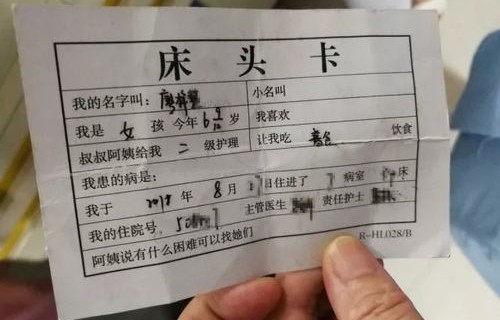 床 头 卡
我的名字叫: 小名叫
我是 女 孩 今年 6 岁 我喜欢
叔叔阿姨给我 二 级护理 让我吃 普食 饮食
我患的病是:
我于 2018 年 8 月 日住进了 病室 床
我的住院号 主管医生 责任护士
阿姨说有什么困难可以找她们
R-HL028/B